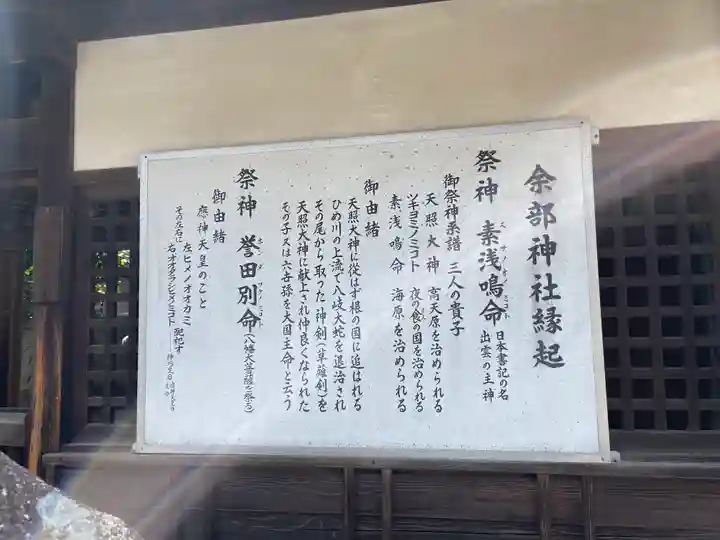 余部神社縁起
祭神 素浅鳴命 日本書記の名
出雲の主神
スサノオノミコト
御祭神系譜 三人の貴子
天照大神 高天原を治められる
ツキヨミノミコト 夜の食の国を治められる
素浅鳴命 海原を治められる
御由緒
天照大神に従はず根の国に追はれる
ひめ川の上流で八岐大蛇を退治され
その尾から取った神剣(草薙剣)を
天照大神に献上され仲良くなられた
その子又は六世孫を大国主命と云う
祭神 誉田別命(八幡大菩薩を祭る)
ホンダワケノミコト
御由緒
応神天皇のこと
その左右に 左ヒメノオオカミ
右オオタラシヒメノミコト 配祀す